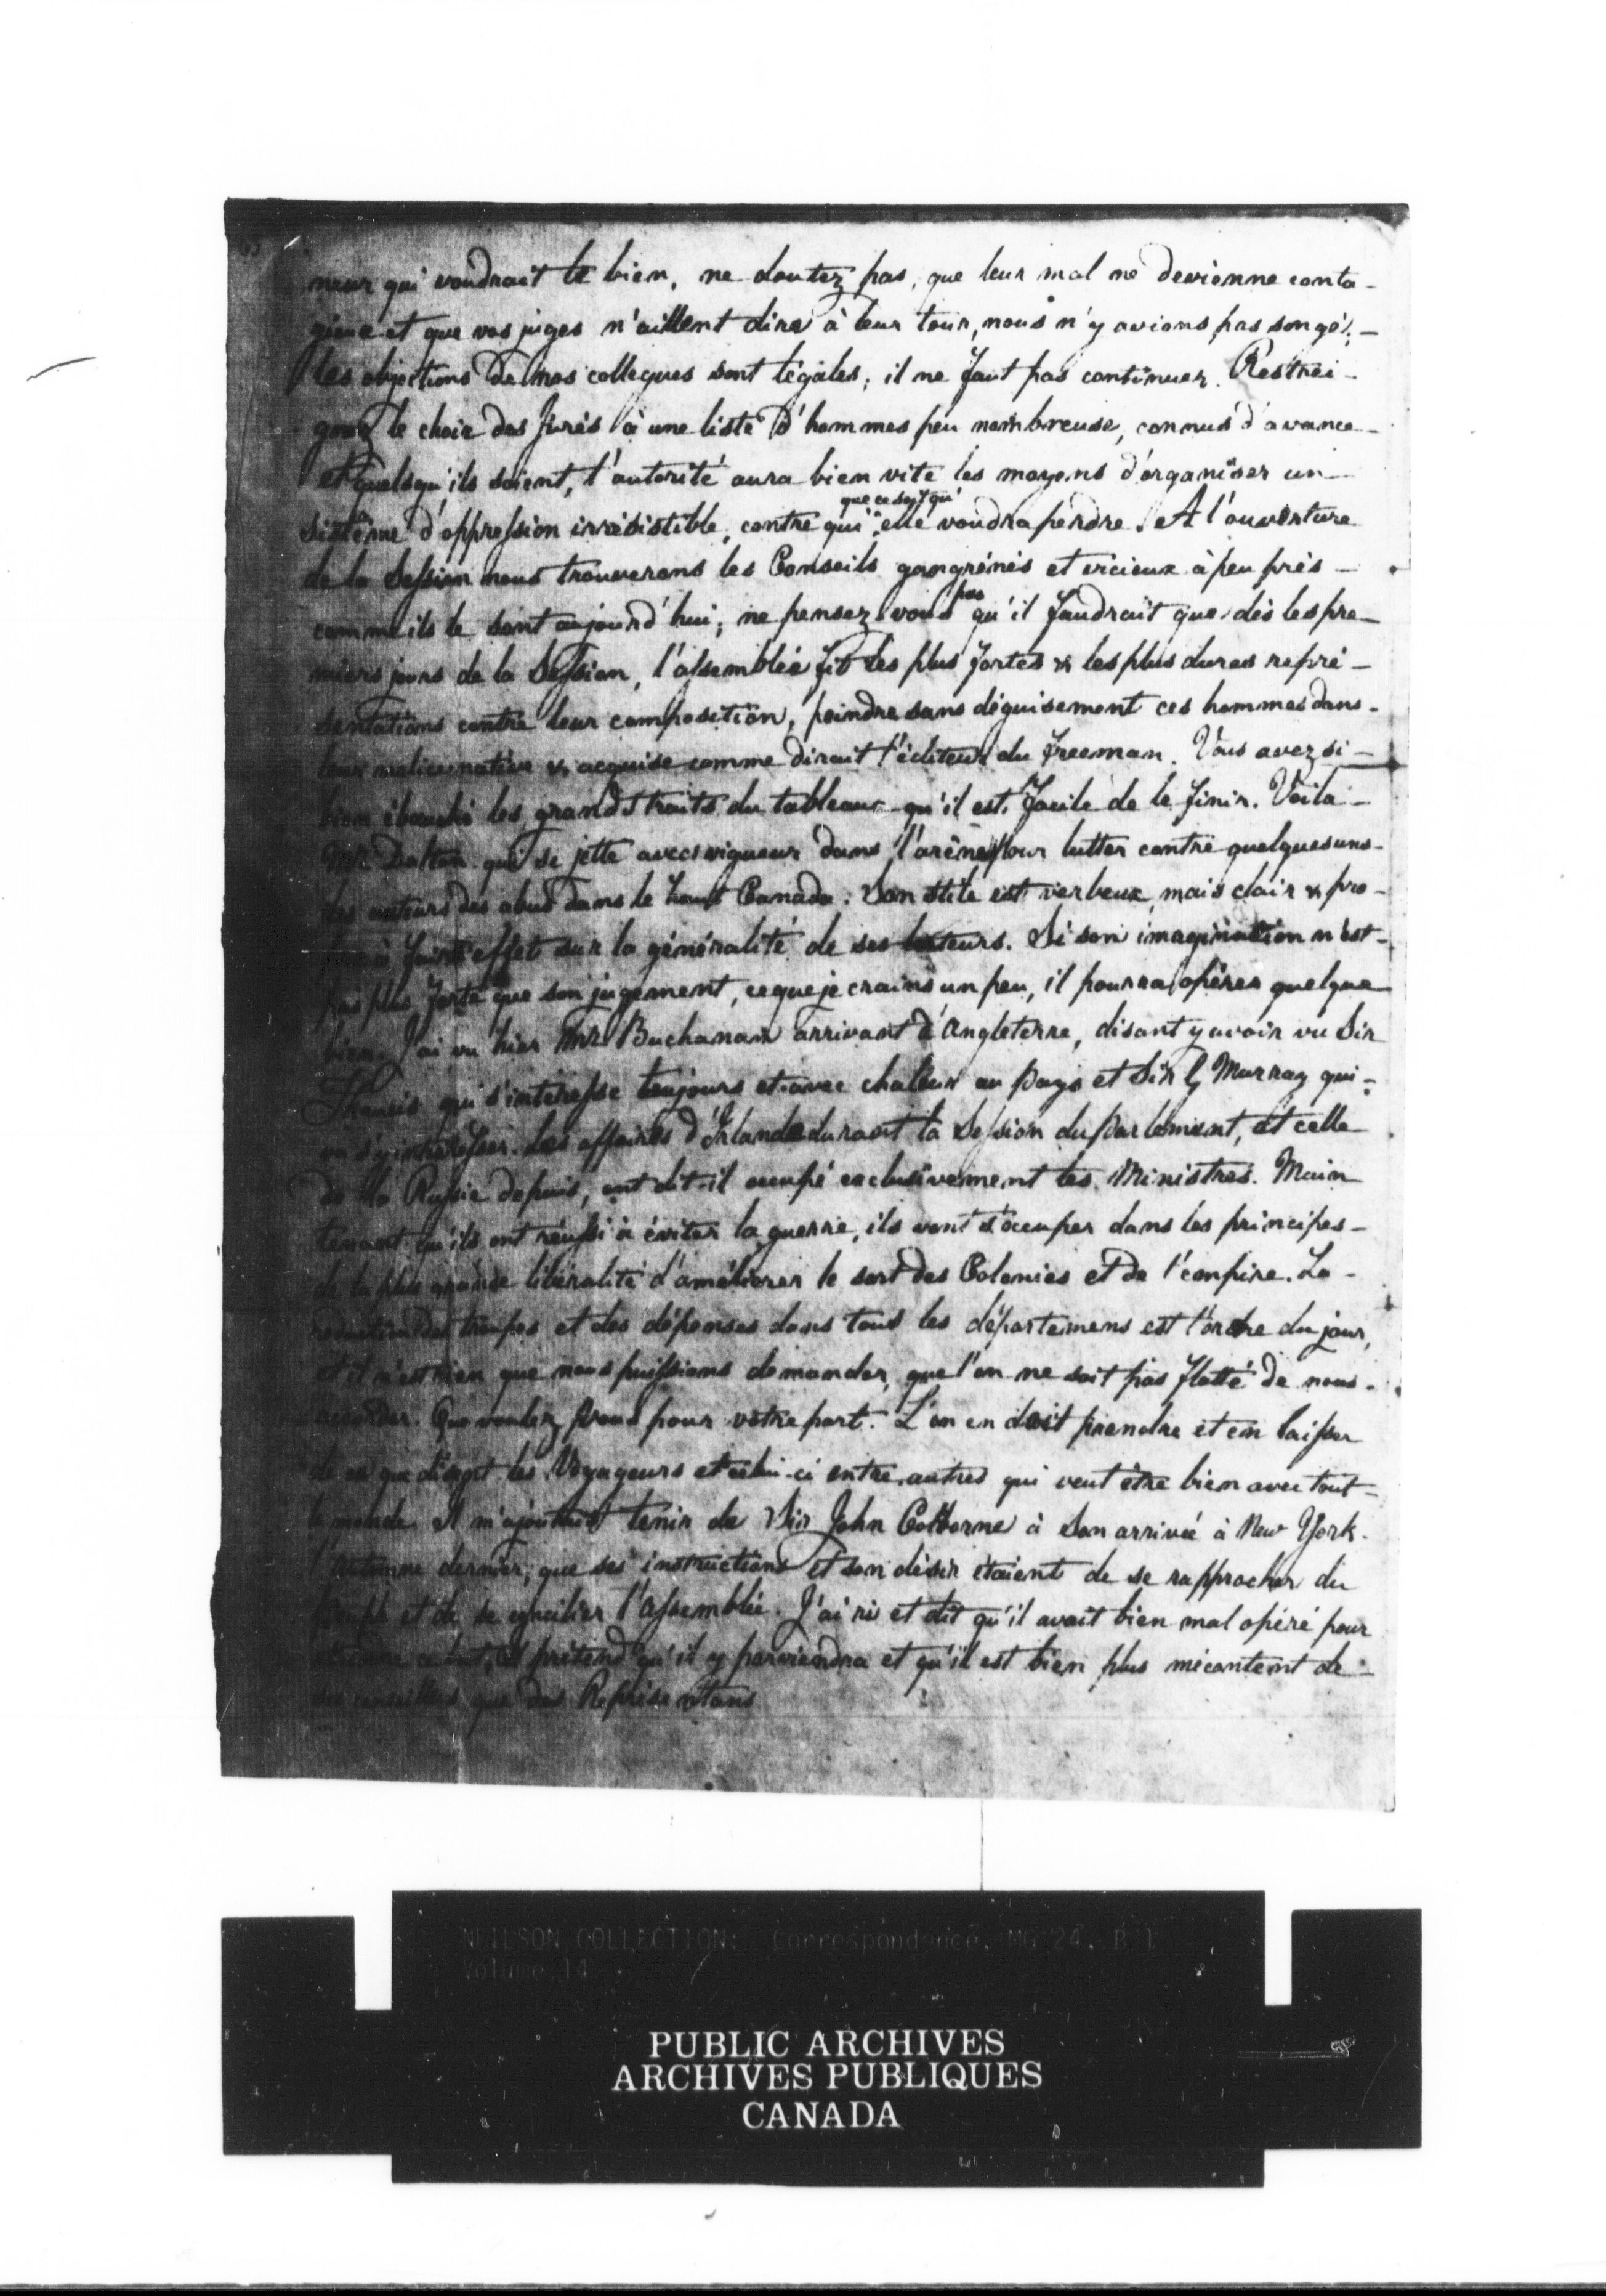 neur qui voudrait le bien, ne doutez pas, que leur mal ne devienne conta-
gieux et que vos juges n'aillent dire à leur tour, nous n'y avions pas songé, -
les objections de mes collegues sont légales; il ne faut pas continuer. Restrei-
gnez le choix des Jurés à une liste d'hommes peu nombreuse, connus d'avance -
et quelsqu'ils soient, l'autorité aura bien vite les moyens d'organiser un -
que ce soit qu'
sistême d'oppression irrésistible, contre qui elle voudra perdre. A l'ouverture
de la Session nous trouverons les Conseils gangrénés et vicieux àpeu près -
pas
comme ils le sont aujourd'hui; ne pensez vous qu'il faudrait que dès les pre-
miers jours de la Session, l'assemblée fit les plus fortes & les plus dures repré-
sentations contre leur composition, peindre sans déguisement ces hommes dans -
leur malice native & acquise comme dirait l'éditeur du Freeman. Vous avez si -
bien ébauché les grands traits du tableau qu'il est facile de le finir. Voila -
Mr. Dalton qui se jette avec vigueur dans l'arêne pour lutter contre quelquesuns -
des auteurs des abus dans le haut Canada. Son stile est verbeux, mais clair & pro-
pre à faire effet sur la généralité de ses lecteurs. Si son imagination n'est -
pas plus forte que son jugement, ce que je crains un peu, il pourra opérer quelque
bien. J'ai vu hier Mr. Buchanan arrivant d'Angleterre, disant y avoir vu Sir
Francis qui s'intéresse toujours et avec chaleur au pays et Sir G Murray qui -
va s'y intéresser. Les affaires d'Irlande durant la Session du parlement, et celle
de la Russie depuis, ont dit-il occupé exclusivement les Ministres. Main
tenant qu'ils ont réussi à éviter la guerre, ils vont s'occuper dans les principes -
de la plus grande libéralité d'améliorer le sort des Colonies et de l'empire. La -
réduction des troupes et des dépenses dans tous les départemens est l'ordre du jour,
et il n'est rien que nous puissions demander, que l'on ne soit pas flatté de nous -
accorder. Que voulez vous pour votre part. L'on en doit prendre et en laisser
de ce que disent les Voyageurs et celui-ci entre autres qui veut être bien avec tout -
le monde. Il m'ajoutait tenir de Sir John Colborne à son arrivée à New York -
l'automne dernier, que ses instructions et son désir étaient de se rapprocher du
peuple et de se concilier l'assemblée. J'ai ri et dit qu'il avait bien mal opéré pour
ce but, il prétend qu'il y parviendra et qu'il est bien plus mécontent de -
ses conseillers que des Représentans
NEILSON COLLECTION: Correspondence. MG 24. B 1
Volume 14
PUBLIC ARCHIVES
ARCHIVES PUBLIQUES
CANADA